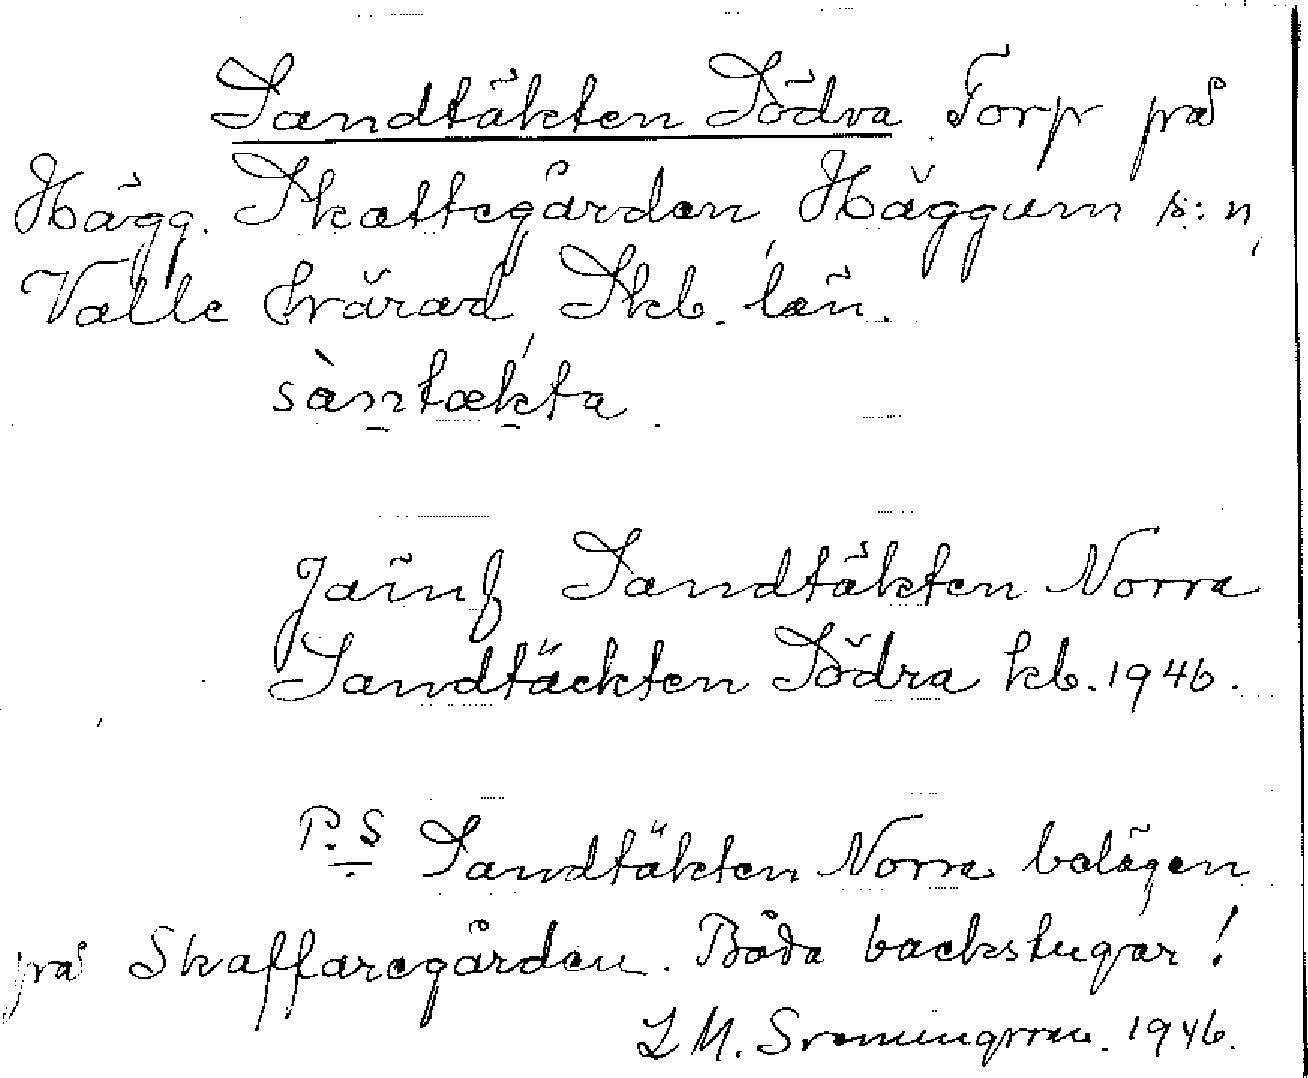 Sandtäkten Södra Torp på
Hägg. Skattegården, Häggum s:n,
Valle härad, Skb. län.
sàntækta.
Jämf Sandtäkten Norra
Sandtäckten Södra kb. 1946.
P.S Sandtäkten Norra belägen
på Skaffaregården. Båda backstugor!
L M. 1946.